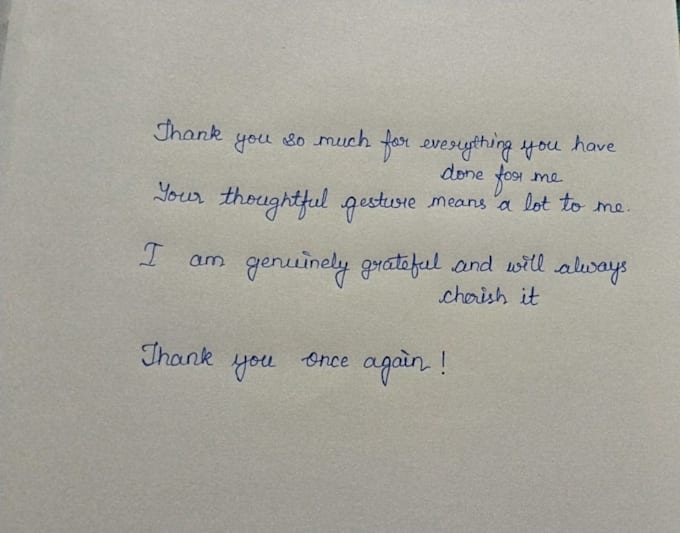 Thank you so much for everything you have
done for me
Your thoughtful gesture means a lot to me.
I am genuinely grateful and will always
cherish it
Thank you once again!